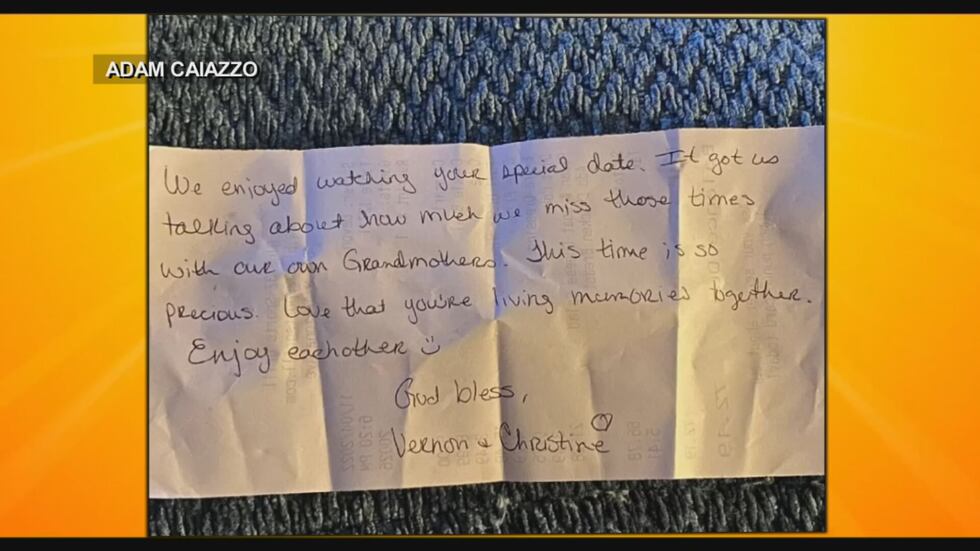 ADAM CAIAZZO
We enjoyed watching your special date. It got us
talking about how much we miss those times
with our own Grandmothers. This time is so
precious. Love that you're living memories together.
Enjoy eachother
God bless,
Vernon & Christine
11/04/2022
6:20 PM
20026